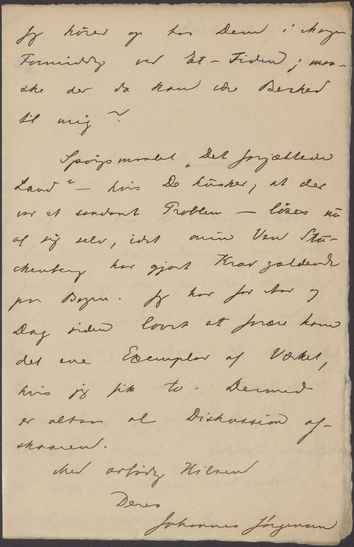 Jeg hører op hos Dem i Morgen
Formiddag ved Et-Tiden; maa-
ske der da kan være Besked
til mig?
Spørgsmaalet "Det forjættede
Land" — hvis De husker, at der
var et saadant Problem — løses nu
af sig selv, idet min Ven Stu-
ckenberg har gjort Krav gældende
paa Bogen. Jeg har for Aar og
Dag siden lovet at forære ham
det ene Exemplar af Værket,
hvis jeg fik to. Dermed
er altsaa al Diskussion af-
skaaren.
Med ærbødig Hilsen
Deres
Johannes Jørgensen